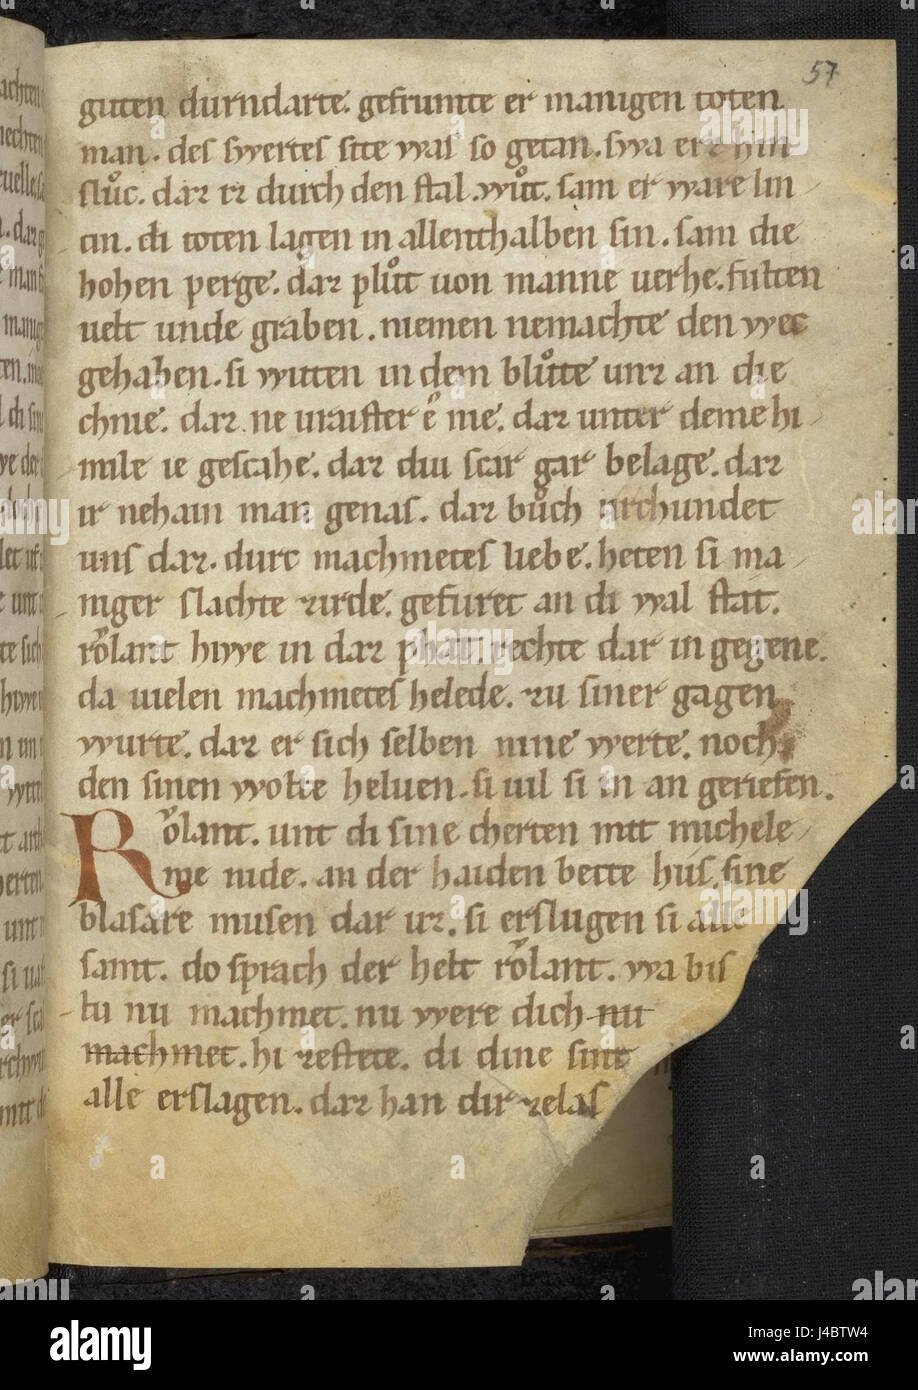 57
guten durndarte. gefrumte er manigen toten
man. des swertes site was so getan. swa erz hin
slůc. daz iz durch den stal. wůt. sam er ware lin
tin. di toten lagen in allenthalben sin. sam die
hohen perge. daz plůt uon manne uerhe. fulten
uelt unde graben. niemen nemachte den wec
gehaben. si wuten in dem blůte unz an die
chnie. daz ne uraister e nie. daz unter deme hi
mile ie gescahe. daz diu scar gar belage. daz
ir nehain man genas. daz bůch urchundet
uns daz. durc machmetes liebe. heten si ma
niger slachte zirde. gefuret an di wal stat.
růlant hiwe in daz phat. rechte dar in gegene.
da uielen machmetes helede. zu siner gagen
wurte. daz er sich selben nine werte. noch
den sinen wolte heluen. si uil si in an geriefen.
Růlant. unt di sine cherten mit michele
me nide. an der haiden bette hus. sine
blasare musen dar uz. si erslugen si alle
samt. do sprach der helt růlant. wa bis
tu nu machmet. nu were dich nu
machmet. hi zestete. di dine sint
alle erslagen. daz han dir zelas
alamy
Image ID: J4BTW4
www.alamy.com